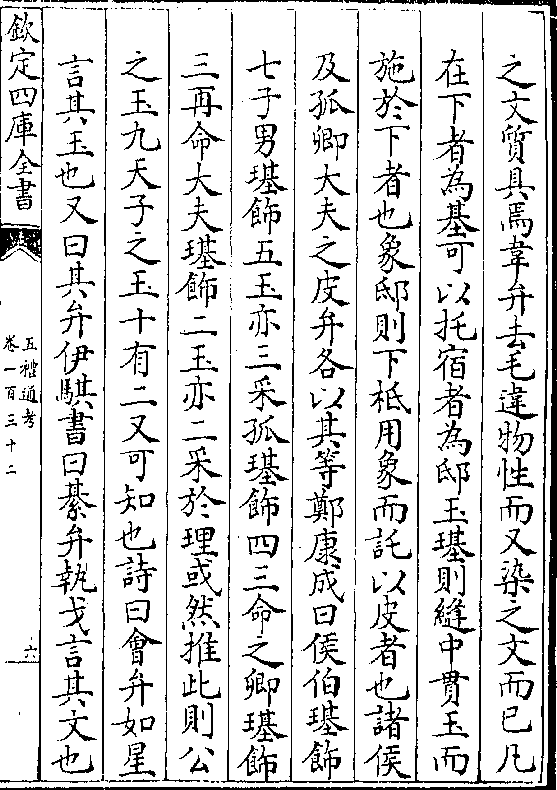 之文質具焉韋弁去毛違物性而又染之文而已凡
在下者為基可以托宿者為邸玉璂則縫中貫玉而
施於下者也象邸則下柢用象而託以皮者也諸侯
及孤卿大夫之皮弁各以其等鄭康成曰侯伯璂飾
七子男璂飾五玉亦三采孤璂飾四三命之卿璂飾
三再命大夫璂飾二玉亦二采於理或然推此則公
之玉九天子之玉十有二又可知也詩曰會弁如星
言其玉也又曰其弁伊騏書曰綦弁執戈言其文也
欽定四庫全書
五禮通考
卷一百三十二
六